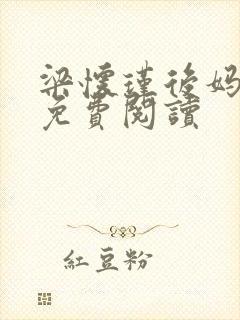 梁懷瑾後媽
免費閱讀
紅豆粉